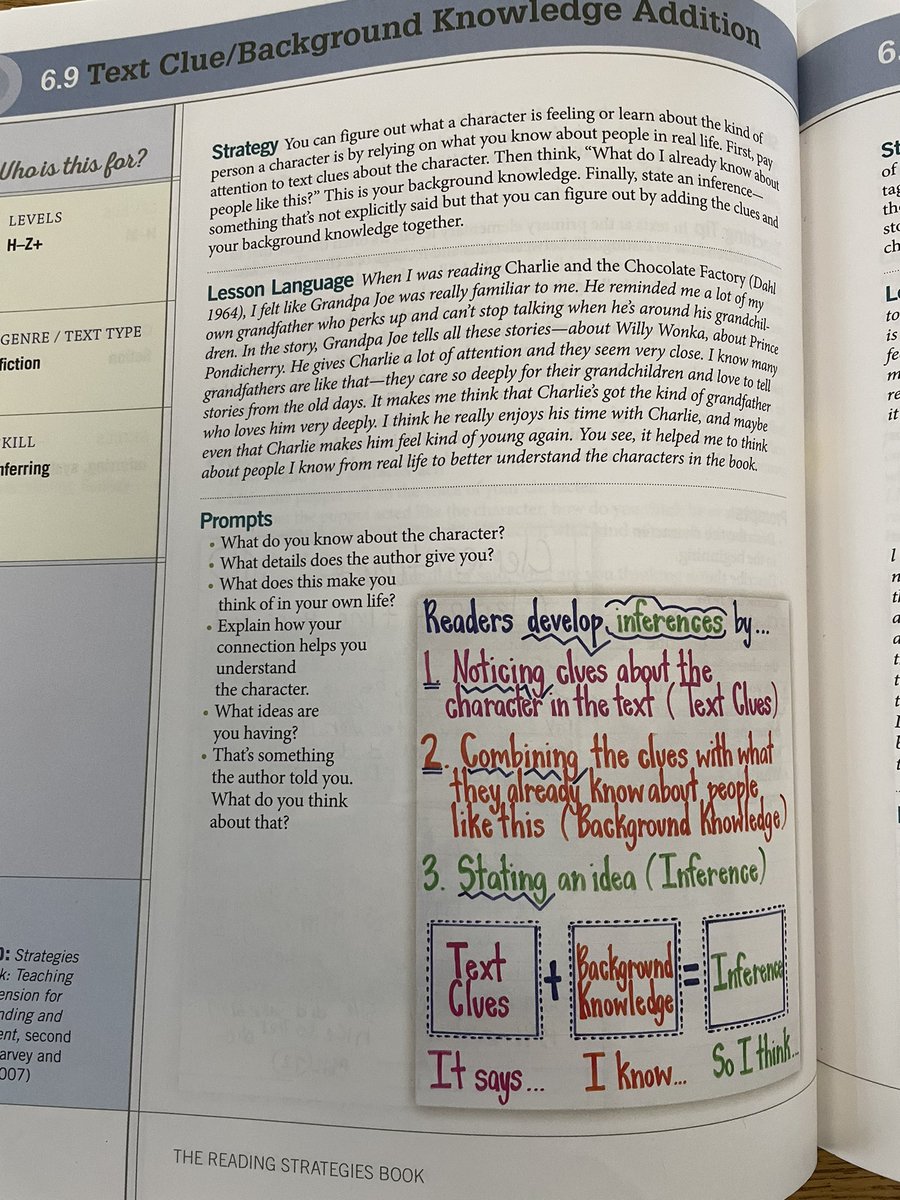 6.9 Text Clue/Background Knowledge Addition
Who is this for?
LEVELS
H–Z+
GENRE / TEXT TYPE
fiction
Strategy You can figure out what a character is feeling or learn about the kind of
person a character is by relying on what you know about people in real life. First, pay
attention to text clues about the character. Then think, “What do I already know about
people like this?” This is your background knowledge. Finally, state an inference—
something that’s not explicitly said but that you can figure out by adding the clues and
your background knowledge together.
Lesson Language When I was reading Charlie and the Chocolate Factory (Dahl
1964), I felt like Grandpa Joe was really familiar to me. He reminded me a lot of my
own grandfather who perks up and can’t stop talking when he’s around his grandchil-
dren. In the story, Grandpa Joe tells all these stories—about Willy Wonka, about Prince
Pondicherry. He gives Charlie a lot of attention and they seem very close. I know many
grandfathers are like that—they care so deeply for their grandchildren and love to tell
stories from the old days. It makes me think that Charlie’s got the kind of grandfather
who loves him very deeply. I think he really enjoys his time with Charlie, and maybe
even that Charlie makes him feel kind of young again. You see, it helped me to think
about people I know from real life to better understand the characters in the book.
Prompts
• What do you know about the character?
• What details does the author give you?
• What does this make you
think of in your own life?
• Explain how your
connection helps you
understand
the character.
• What ideas are
you having?
• That’s something
the author told you.
What do you think
about that?
Readers develop inferences by...
1. Noticing clues about the
character in the text (Text Clues)
2. Combining the clues with what
they already know about people
like this (Background Knowledge)
3. Stating an idea (Inference)
Text
Clues
+
Background
Knowledge
=
Inference
It says...
I know...
So I think...
Strategies
Teaching
for
and
second
and
THE READING STRATEGIES BOOK